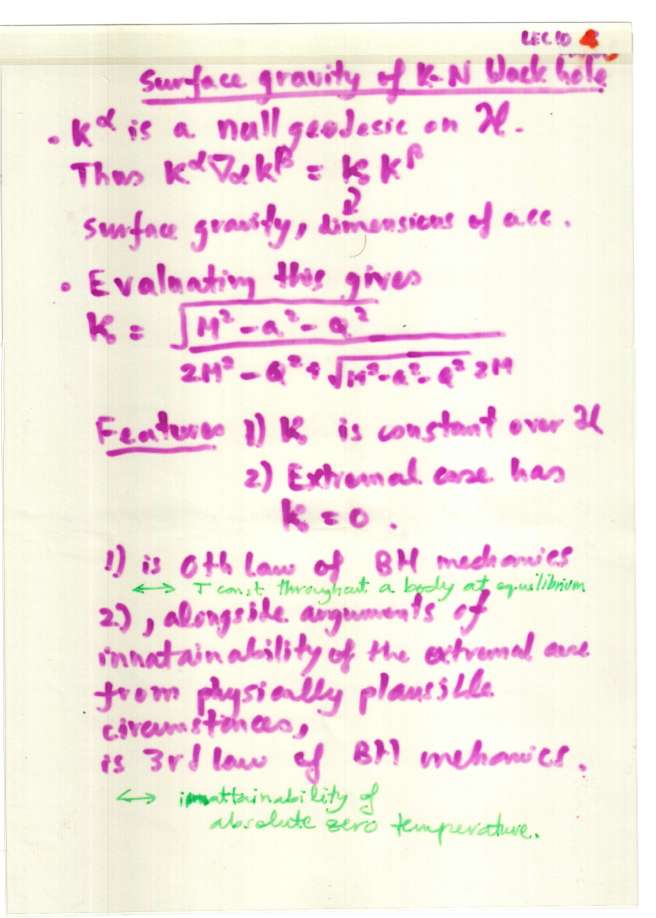 LEC 10 4
Surface gravity of K-N black hole
• k^α is a null geodesic on ℋ.
Thus k^α∇_α k^β = κ k^β
surface gravity, dimensions of acc.
• Evaluating this gives
κ = √(M² - a² - Q²)
2M² - Q² + √(M² - a² - Q²) 2M
Features 1) κ is constant over ℋ
2) Extremal case has
κ = 0.
1) is 0th Law of BH mechanics
↔ T const throughout a body at equilibrium
2), alongside arguments of
innatainability of the extremal case
from physically plausible
circumstances,
is 3rd law of BH mehanics.
↔ inattainability of
absolute zero temperature.